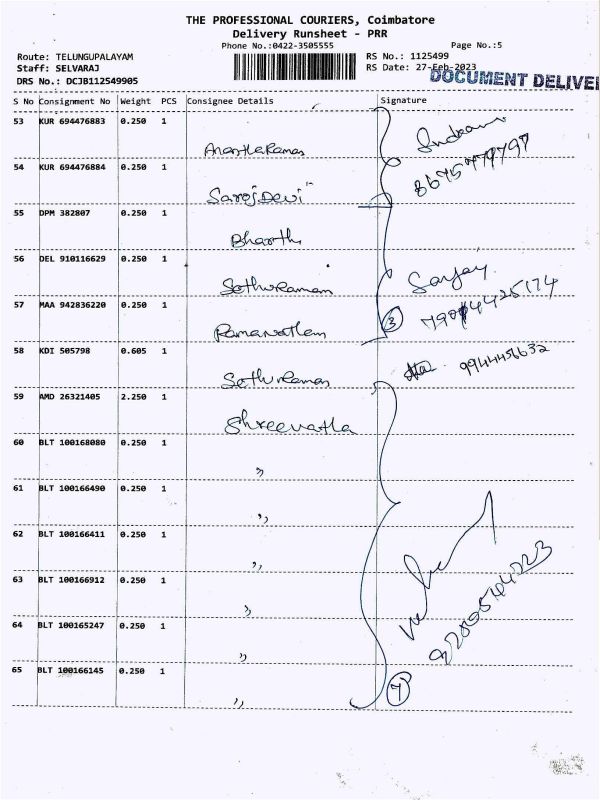 THE PROFESSIONAL COURIERS, Coimbatore
Delivery Runsheet - PRR
Phone No.:0422-3505555 Page No.:5
Route: TELUNGUPALAYAM RS No.: 1125499
Staff: SELVARAJ RS Date: 27-Feb-2023
DRS No.: DCJB112549905 DOCUMENT DELIVE
S No Consignment No Weight PCS Consignee Details Signature
53 KUR 694476883 0.250 1
AnanthaRaman
54 KUR 694476884 0.250 1 8675779797
Saroj Devi
55 DPM 382807 0.250 1
Bharathi
56 DEL 910116629 0.250 1
SethuRaman Sanjay
57 MAA 942836220 0.250 1 3
Ramanathan
58 KDI 505798 0.605 1 9944456632
SethuRaman
59 AMD 26321405 2.250 1
Shreevatha
60 BLT 100168080 0.250 1
"
61 BLT 100166490 0.250 1
"
62 BLT 100166411 0.250 1
"
63 BLT 100166912 0.250 1
"
64 BLT 100165247 0.250 1
"
65 BLT 100166145 0.250 1 7
"